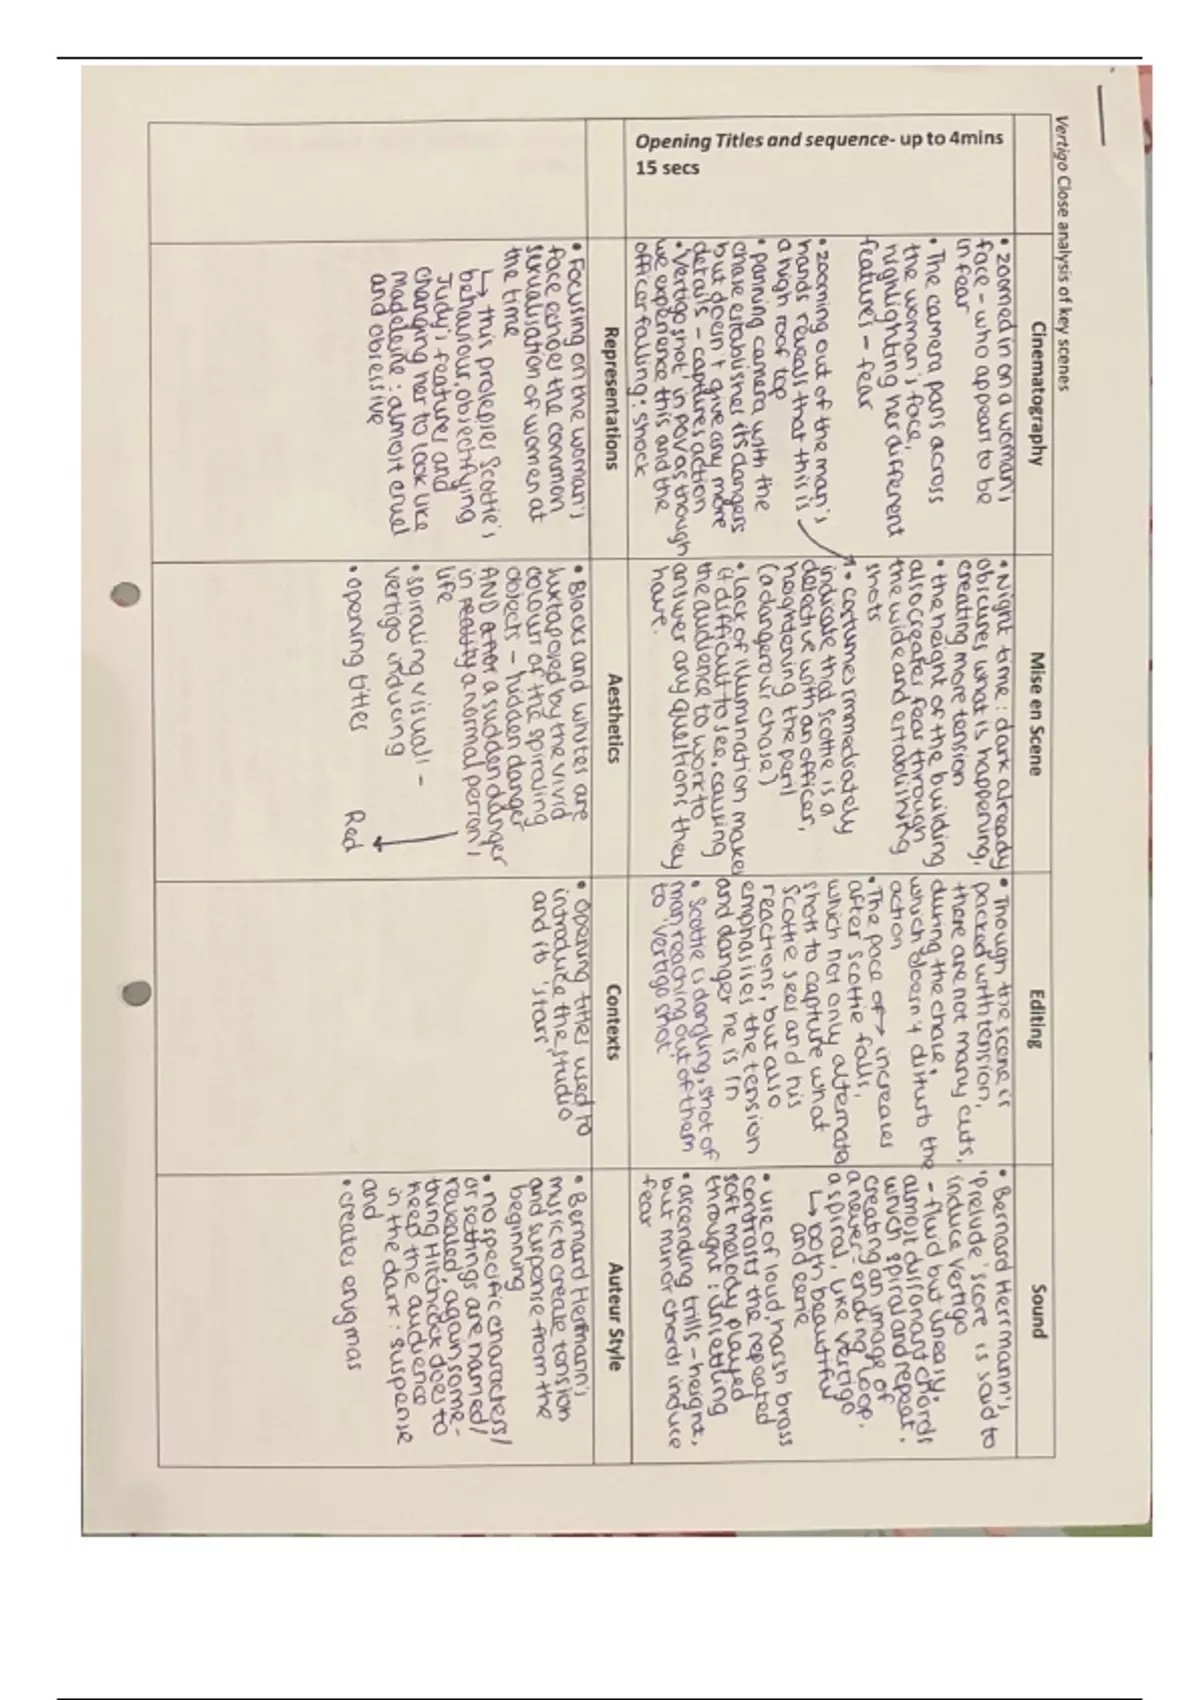 Vertigo Close analysis of key scenes
Opening Titles and sequence- up to 4mins
15 secs
Cinematography
• zoomed in on a woman's
face - who appears to be
in fear
• The camera pans across
the woman's face,
highlighting her different
features - fear
• zooming out of the man's
hands reveals that this is
a high roof top
• panning camera with the
chase establishes its dangers
but doesn't give any more
details - captures action
• 'Vertigo shot' in pov as though
we experience this and the
officer falling : shock
Mise en Scene
• Night time : dark already
obscures what is happening,
creating more tension
• the height of the building
also creates fear through
the wide and establishing
shots
• costumes immediately
indicate that Scottie is a
detective with an officer,
heightening the peril
(a dangerous chase)
• lack of illumination makes
it difficult to see, causing
the audience to work to
answer any questions they
have.
Editing
• Though the scene is
packed with tension,
there are not many cuts,
during the chase,
which doesn't disturb the
action
• The pace of → increases
after Scottie falls,
which not only alternate
shots to capture what
Scottie sees and his
reactions, but also
emphasises the tension
and danger he is in
• Scottie is dangling, shot of
man reaching out of them
to 'vertigo shot'
Sound
• Bernard Herrmann's
'Prelude' score is said to
induce vertigo
- fluid but uneasy;
almost dissonant chords
which spiral and repeat,
creating an image of
a never-ending loop,
a spiral, like vertigo
↳ both beautiful
and eerie
• use of loud, harsh brass
contrasts the repeated
soft melody played
throught : unsettling
• ascending trills - height,
but minor chords induce
fear
Representations
• Focusing on the woman's
face echoes the common
sexualisation of women at
the time
↳ this prolepses Scottie's
behaviour, objectifying
Judy's features and
changing her to look like
Madeleine : almost cruel
and obsessive
Aesthetics
• Blacks and whites are
juxtaposed by the vivid
colours of the spiraling
objects - hidden danger
AND after a sudden danger
in reality a normal person's
life
• spiraling visuals -
vertigo inducing
• opening titles
Red
Contexts
• opening titles used to
introduce the studio
and its 'stars'
Auteur Style
• Bernard Herrmann's
music to create tension
and suspense from the
beginning
• no specific characters/
or settings are named/
revealed, again some-
thing Hitchcock does to
keep the audience
in the dark : suspense
and
• creates enigmas